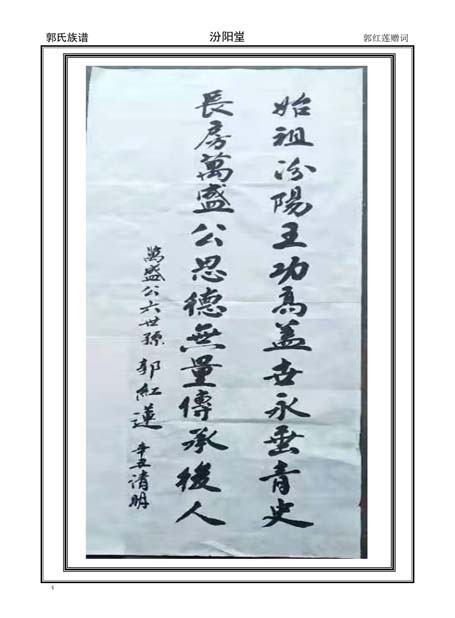 郭氏族谱
汾阳堂
郭红莲赠词
始祖汾陽王功高盖世永垂青史
長房萬盛公恩德無量傳承後人
萬盛公六世孫 郭紅蓮 辛丑清明
4